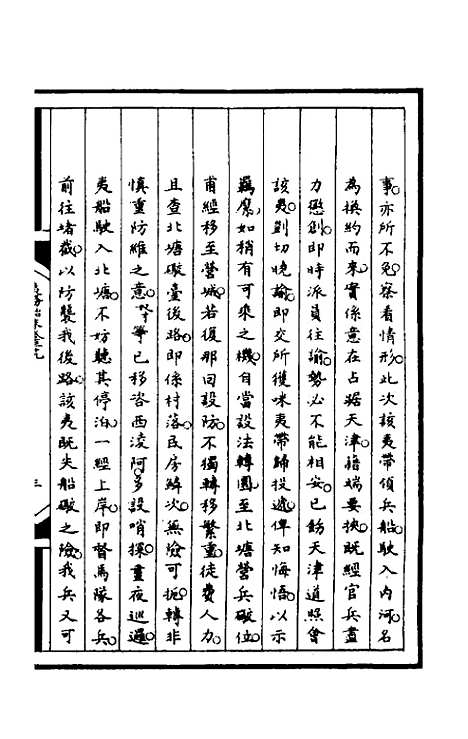 事。亦所不免。察看情形。此次該夷帶領兵船。駛入內河。名
為換約而來。實係意在占據天津。藉端要挾。既經官兵盡
力懲創。即時派員往諭。勢必不能相安。已飭天津道照會
該夷。剴切曉諭。即交所獲咪夷帶歸投遞。俾知悔悟。以示
羈縻。如稍有可乘之機。自當設法轉圜。至北塘營兵礮位。
甫經移至營城。若復那回設防。不獨轉移繁重。徒費人力。
且查北塘礮臺後路。即係村落。民房鱗次。無險可扼。轉非
慎重防維之意。奴才等寧已移咨西凌阿。多設哨探。晝夜巡邏。
夷船駛入北塘。不妨聽其停泊。一經上岸。即督馬隊各兵。
前往堵截。以防襲我後路。該夷既失船礮之險。我兵又可
三